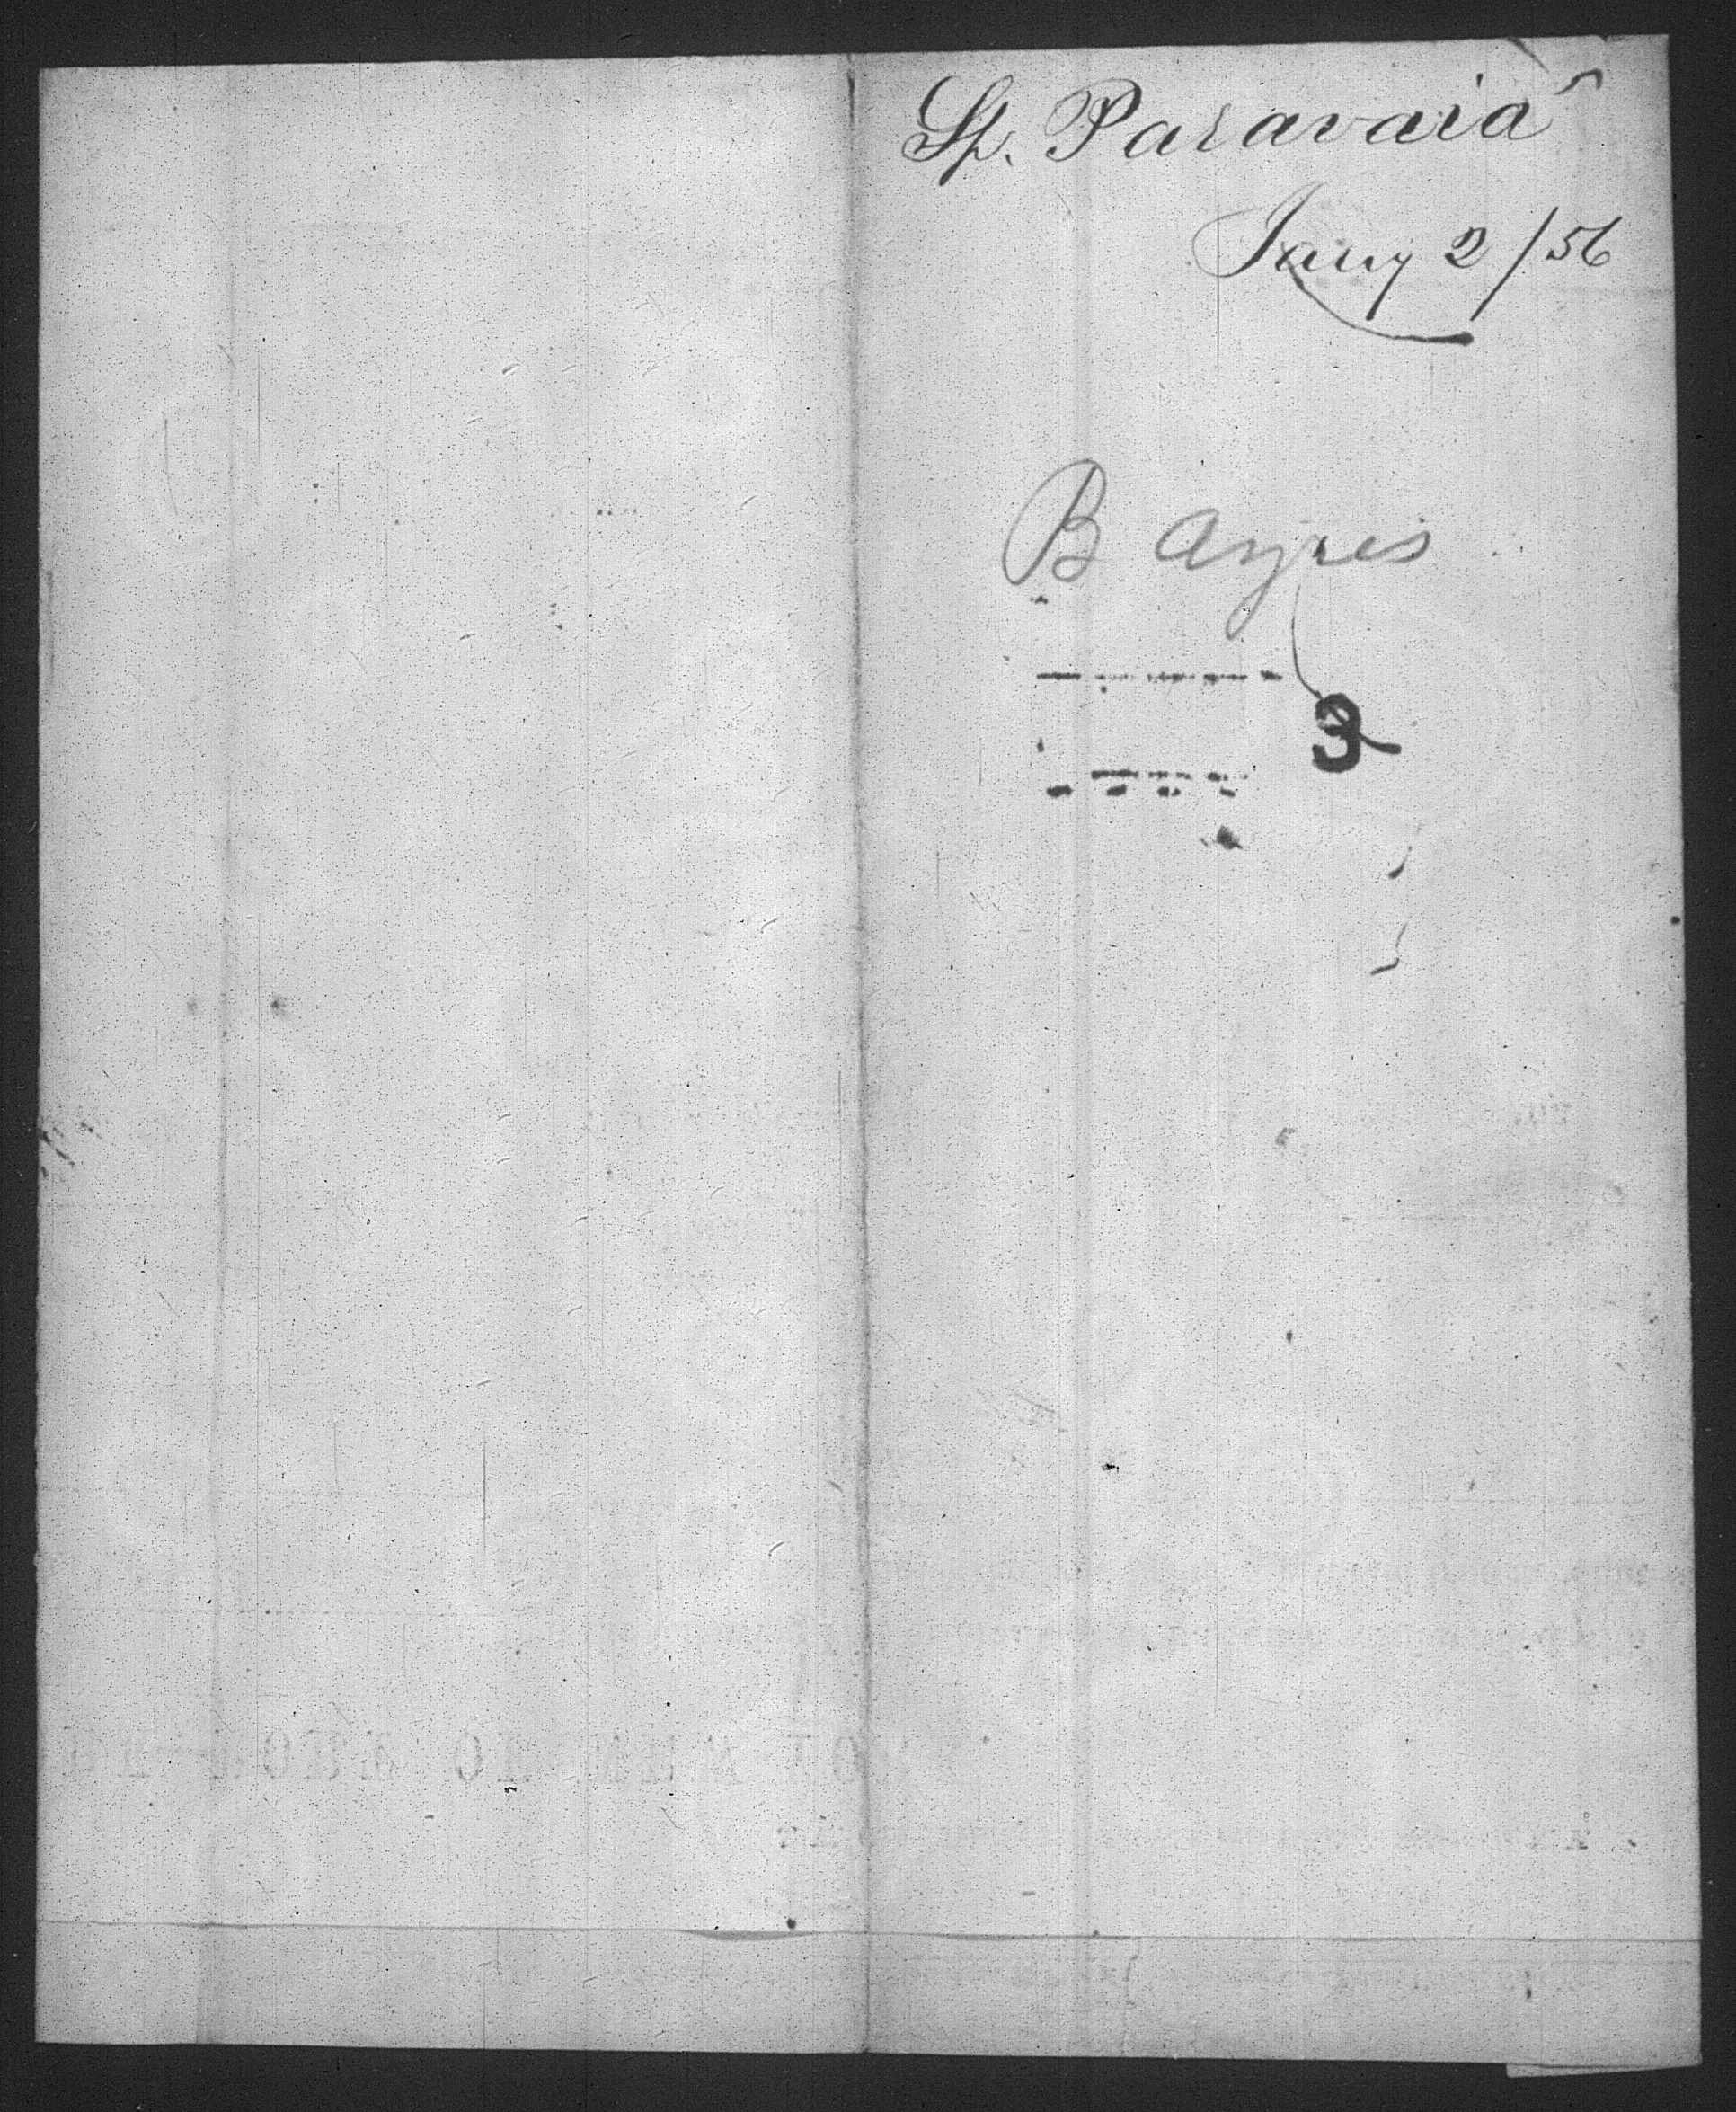 Sp. Paravaia
Jany 2/56
B Ayres
3